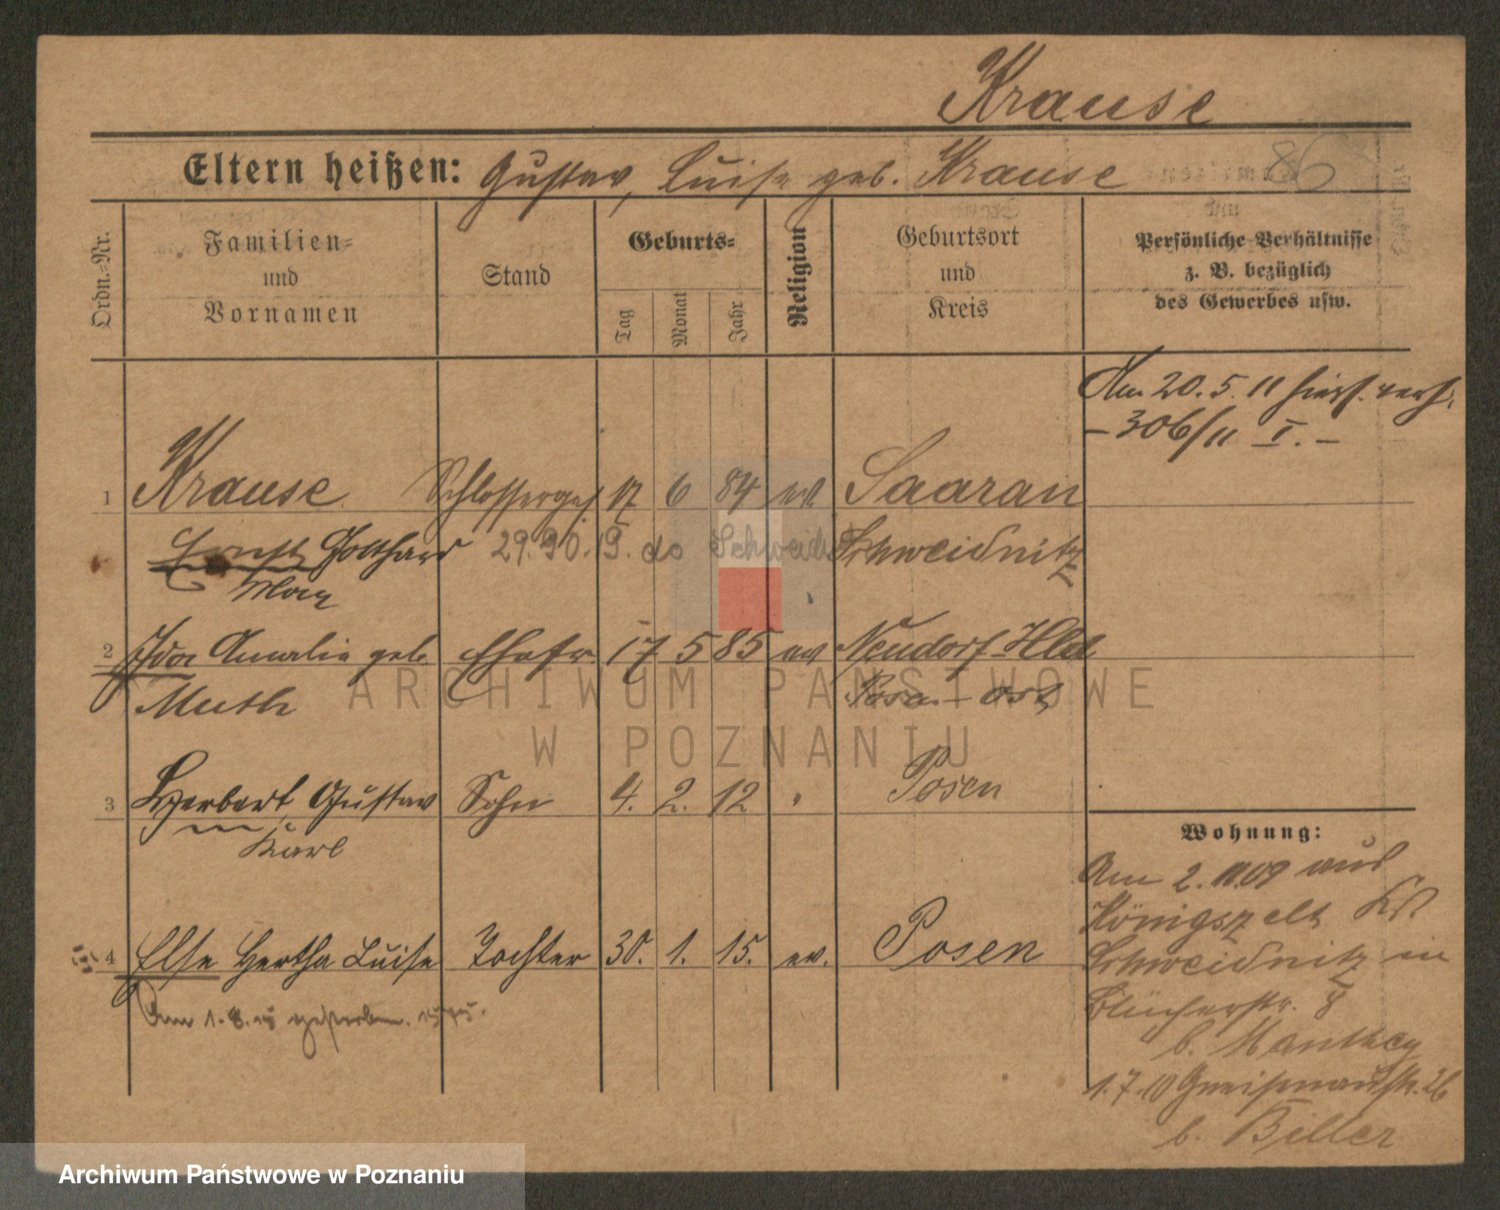 Krause
Eltern heißen: Gustav, Luise geb. Krause 86
Ordn.-Nr.
Familien- und Vornamen
Stand
Geburts-
Tag
Monat
Jahr
Religion
Geburtsort und Kreis
Persönliche Verhältnisse z. B. bezüglich des Gewerbes usw.
Am 20.5.11 hier verh.
– 306/11 I. –
1 Krause Schlosserges. 17 6 84 ev. Saarau
Ernst Gotthard 29.30.19. do Schweid Schweidnitz
Max
2 Ida Amalie geb. Ehefr 17 5 85 ev Neudorf Hld
Muth Posen-Ost
3 Herbert, Gustav Sohn 4. 2. 12 " Posen
Karl
4 Else Hertha Luise Tochter 30. 1. 15. ev. Posen
Am 1.8. gestorben.
Wohnung:
Am 2.11.09 aus
Königszelt Krs
Schweidnitz in
Blücherstr. 8
b. Manthey
1.7.10 Gneisenaustr. 26
b. Biller
ARCHIWUM PAŃSTWOWE
W POZNANIU
Archiwum Państwowe w Poznaniu